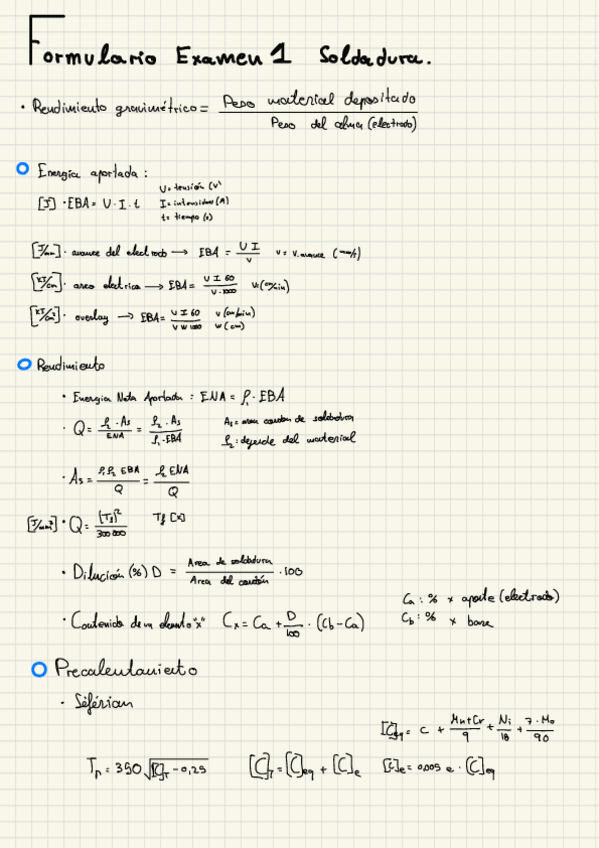 Formulario Examen 1 Soldadura.
· Rendimiento gravimétrico = Peso material depositado / Peso del alma (electrodo)
Energía aportada :
U = tensión (V)
[J] · EBA = U · I · t I = intensidad (A)
t = tiempo (s)
[J/mm] · avance del electrodo → EBA = U I / v v = v. avance (mm/s)
[KJ/cm] · arco electrica → EBA = U I 60 / v · 1000 v (cm/min)
[KJ/cm²] · overlay → EBA = U I 60 / v W 1000 v (cm/min)
W (cm)
Rendimiento
· Energia Neta Aportada : ENA = ρ₁ · EBA
· Q = ρ₂ · As / ENA = ρ₂ · As / ρ₁ · EBA As = area cordon de soldadura
ρ₂ : depende del material
· As = ρ₁ ρ₂ EBA / Q = ρ₂ ENA / Q
[J/mm³] · Q = (Tf)² / 300 000 Tf [K]
· Dilución (%) D = Area de soldadura / Area del cordón · 100
Ca : % x aporte (electrodo)
· Contenido de un elemento "x" Cx = Ca + D/100 · (Cb - Ca) Cb : % x base
Precalentamiento
· Séférian
[C]eq = C + Mn+Cr / 9 + Ni / 18 + 7 · Mo / 90
Tp = 350 √[C]T - 0,25 [C]T = [C]eq + [C]e [C]e = 0,005 e · [C]eq